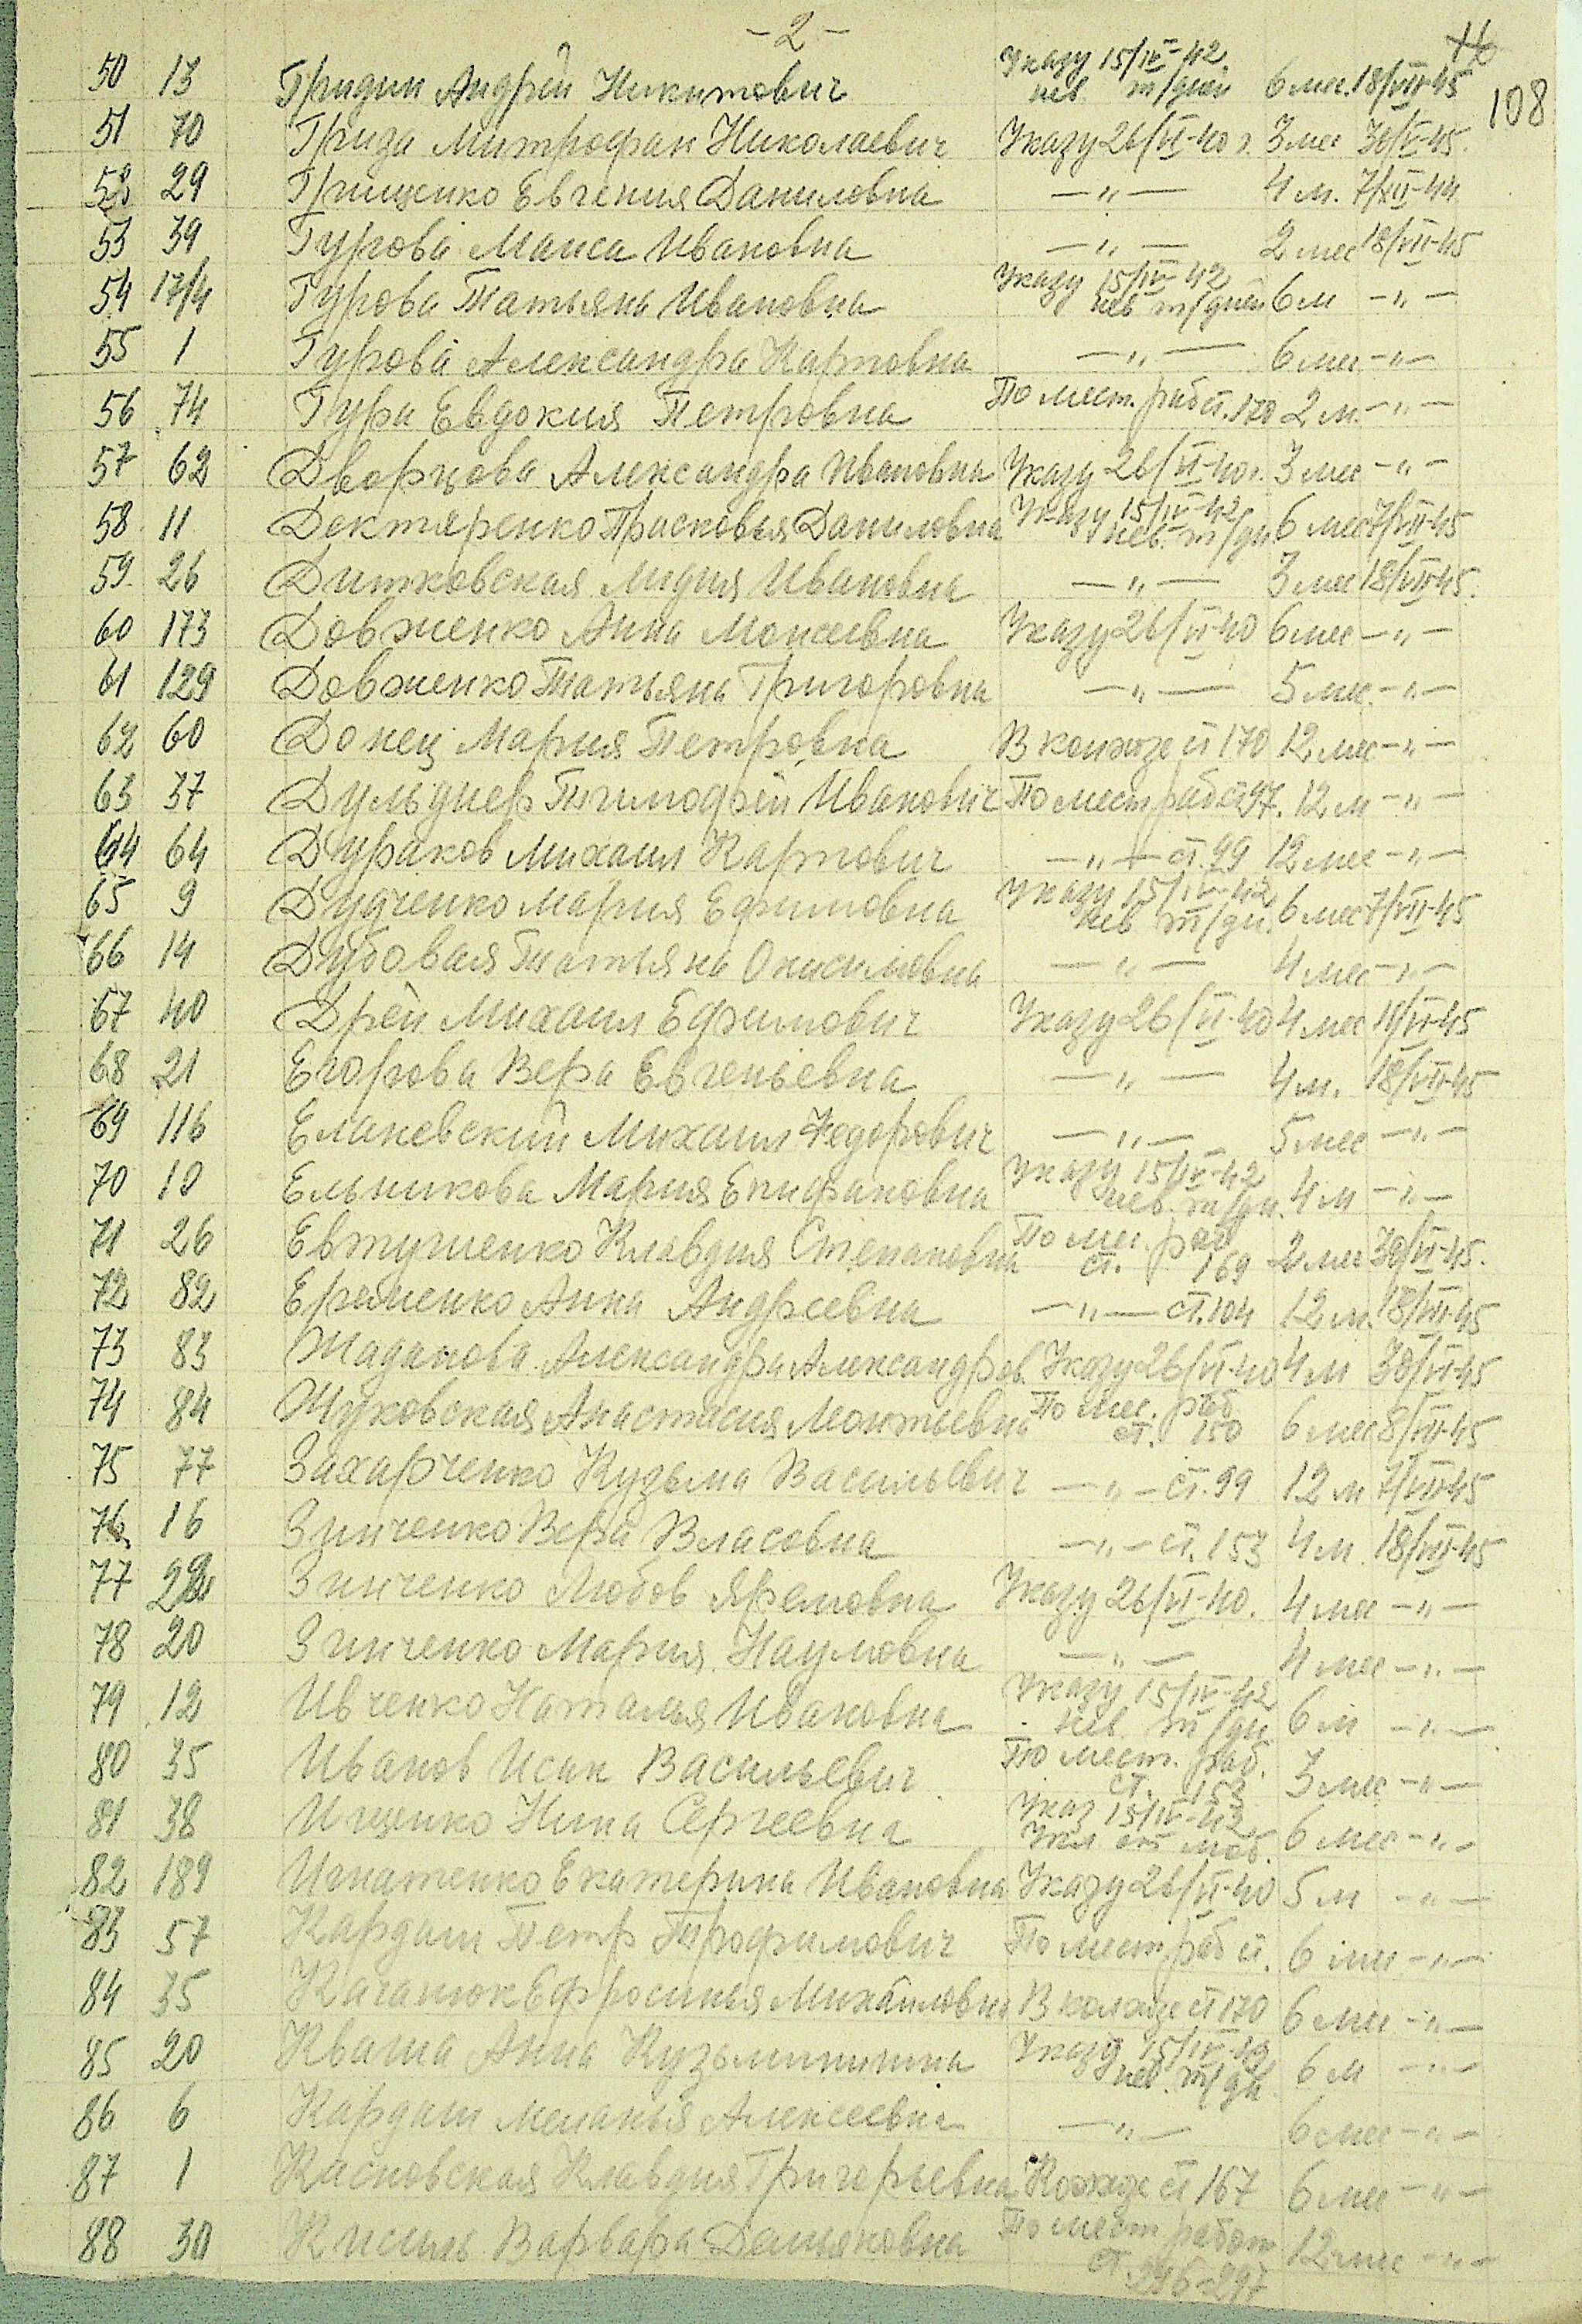 -2-
108
50 13 Гридин Андрей Никитович Указу 15/IV-42 нев. т/дней 6 мес. 18/VII-45
51 70 Грида Митрофан Николаевич Указу 26/VI-40 г. 3 мес 30/VI-45.
52 29 Грищенко Евгения Даниловна -"- 4 м. 7/XII-44
53 39 Гурова Маиса Ивановна -"- 2 мес 18/VII-45
54 17/4 Гурова Татьяна Ивановна Указу 15/IV-42 нев т/дней 6 м -"-
55 1 Гурова Александра Карповна -"- 6 мес -"-
56 74 Гура Евдокия Петровна По мест. раб ст. 170 2 м. -"-
57 62 Дворцова Александра Ивановна Указу 26/VI-40г. 3 мес -"-
58 11 Дектяренко Прасковья Даниловна Указу 15/IV-42 нев. т/дн 6 мес 7/VII-45
59 26 Дитковская Лидия Ивановна -"- 3 мес 18/VII-45.
60 173 Довженко Анна Моисеевна Указу 26/VI-40 6 мес -"-
61 129 Довженко Татьяна Григоровна -"- 5 мес. -"-
62 60 Донец Мария Петровна В колхозе ст 170 12 мес -"-
63 37 Дульднер Тимофей Иванович По мест раб ст 297. 12 м -"-
64 64 Дураков Михаил Карпович -"- ст. 99 12 мес -"-
65 9 Дудченко Мария Ефимовна Указу 15/IV-42 нев т/дн. 6 мес 7/VII-45
66 14 Дубовая Татьяна Онисимовна -"- 4 мес -"-
67 40 Дрей Михаил Ефимович Указу 26/VI-40 4 мес 11/VI-45
68 21 Егорова Вера Евгеньевна -"- 4 м. 18/VII-45
69 116 Еланевский Михаил Федорович -"- 5 мес -"-
70 10 Ельникова Мария Епифановна Указу 15/IV-42 нев. т/дн. 4 м -"-
71 26 Евтушенко Клавдия Степановна По мес. раб ст. 169 2 мес 30/VI-45.
72 82 Еременко Анна Андреевна -"- ст. 104 12 м. 18/VII-45
73 83 Жаданова Александра Александров. Указу 26/VI-40 4 м 30/VI-45
74 84 Жуковская Анастасия Леонтьевна По мес. раб ст. 150 6 мес 8/VII-45
75 77 Захарченко Кузьма Васильевич -"- ст. 99 12 м 7/VII-45
76 16 Зинченко Вера Власовна -"- ст. 153 4 м. 18/VII-45
77 Зинченко Любов Яремовна Указу 26/VI-40. 4 мес -"-
78 20 Зинченко Мария Наумовна -"- 4 мес -"-
79 12 Ивченко Наталья Ивановна Указу 15/IV-42 нев. т/дн 6 м -"-
80 35 Иванов Исак Васильевич По мест. раб. ст. 153 3 мес -"-
81 38 Ищенко Нина Сергеевна Указ 15/IV-42 Укл. от моб. 6 мес -"-
82 189 Игнатенко Екатерина Ивановна Указу 26/VI-40 5 м -"-
83 57 Кардаш Петр Трофимович По мест раб ст. 6 мес -"-
84 35 Качанюк Ефросинья Михайловна В колхозе ст 170 6 мес -"-
85 20 Кваша Анна Кузьминишна Указу 15/IV-42 нев. т/дн 6 м -"-
86 6 Кардаш Меланья Алексеевна -"- 6 мес -"-
87 1 Касновская Клавдия Григорьевна ст 167 6 мес -"-
88 30 Кисиль Варвара Демьяновна По мест. работ ст 296-297 12 мес -"-